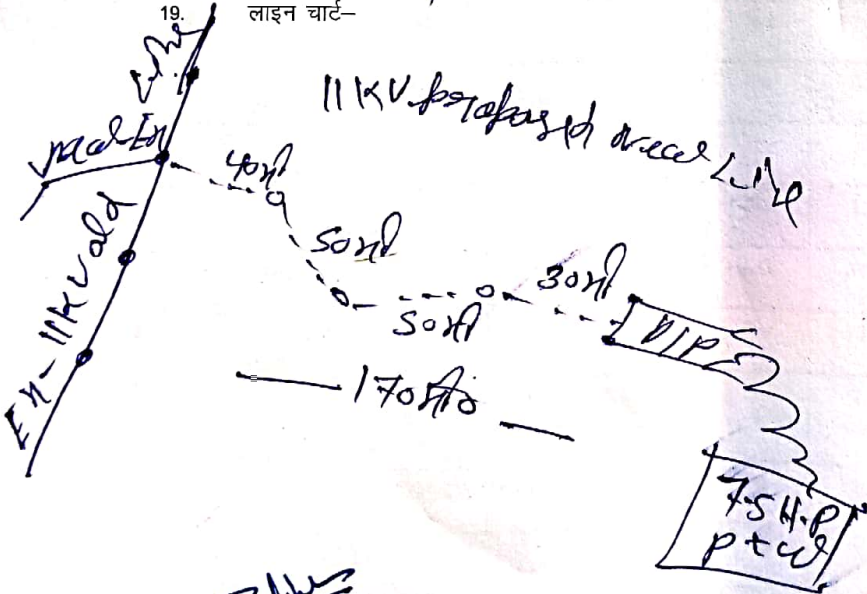 19. लाइन चार्ट–
Line
11KV proposed new Line
40मी
Ex-11KV old
50मी
30मी
50मी
D/P
170मी०
7.5 H.P
P+W